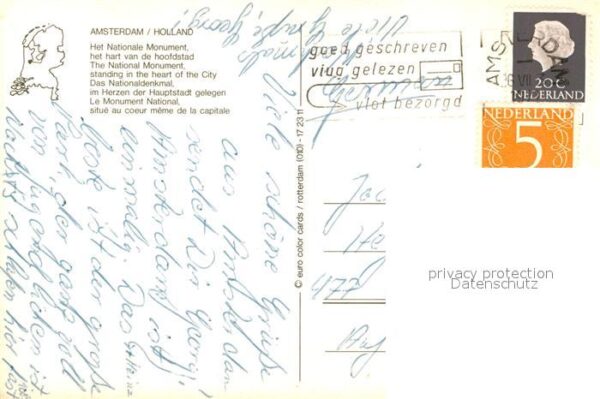 AMSTERDAM / HOLLAND
Het Nationale Monument,
het hart van de hoofdstad
The National Monument,
standing in the heart of the City
Das Nationaldenkmal,
im Herzen der Hauptstadt gelegen
Le Monument National,
situé au coeur même de la capitale
goed geschreven
vlug gelezen
vlot bezorgd
AMSTERDAM
20 c
NEDERLAND
NEDERLAND
5
© euro color cards / rotterdam (010) - 17 23 11
Viele schöne Grüße
aus Amsterdam
sendet Dir Georg!
Amsterdam ist
einmalig. Das
Beste ist der große
Park, der ganz voll
von Jugendlichen ist
Nachts schlafen hier fast
Viele Grüße, Georg!
477
privacy protection
Datenschutz